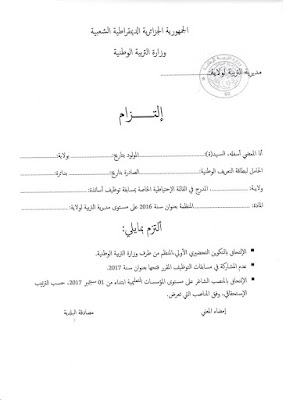 الجمهورية الجزائرية الديمقراطية الشعبية
وزارة التربية الوطنية
مديرية التربية لولاية:
إلتـــــزام
أنا الممضي أسفله، السيد(ة): المولود بتاريخ: بولاية:
الحامل لبطاقة التعريف الوطنية: الصادرة بتاريخ: بدائرة:
ولاية: المدرج في القائمة الإحتياطية الخاصة بمسابقة توظيف أساتذة:
المادة: المنظمة بعنوان سنة 2016 على مستوى مديرية التربية لولاية:
ألتزم بمايلي:
الإلتحاق بالتكوين التحضيري الأولي المنظم من طرف وزارة التربية الوطنية.
عدم المشاركة في مسابقات التوظيف المقرر فتحها بعنوان سنة 2017.
الإلتحاق بالمنصب الشاغر على مستوى المؤسسات التعليمية ابتداء من 01 سبتمبر 2017، حسب الترتيب
الإستحقاقي، وفق المناصب التي تعرض.
إمضاء المعني مصادقة البلدية